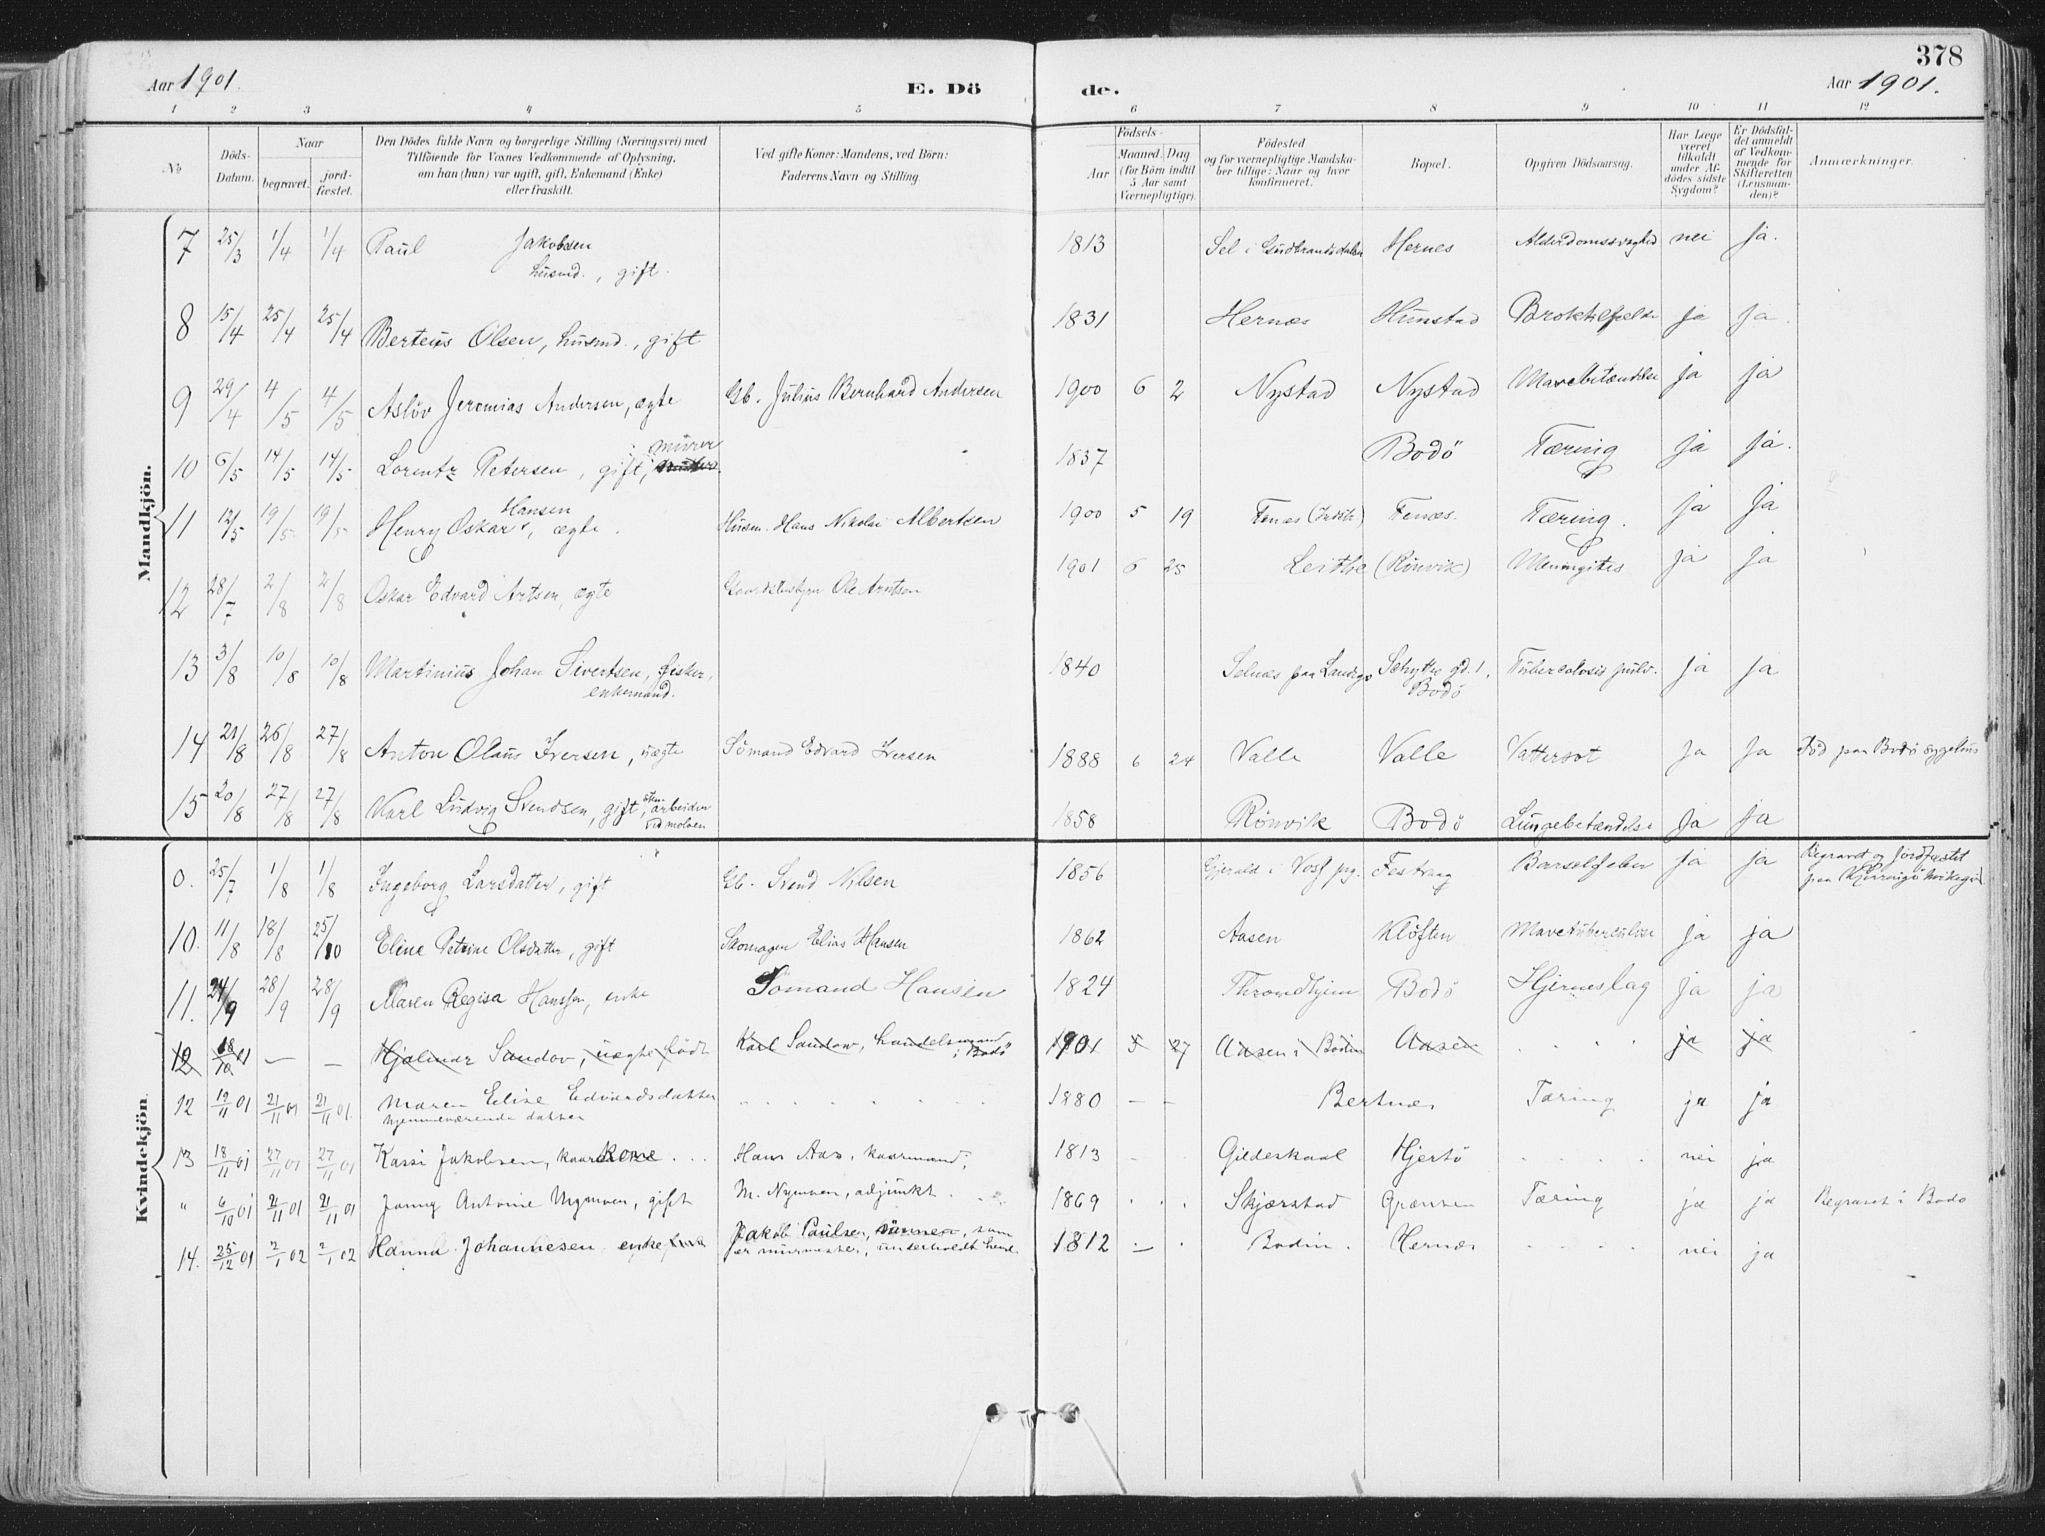 378
Aar 1901.
E. Dö
de.
Aar 1901.
1 2 3 4 5 6 7 8 9 10 11 12
No
Döds-
Datum.
Naar
begravet.
jord-
fæstet.
Den Dödes fulde Navn og borgerlige Stilling (Næringsvei) med
Tilföiende for Voxnes Vedkommende af Oplysning,
om han (hun) var ugift, gift, Enkemand (Enke)
eller fraskilt.
Ved gifte Koner: Mandens, ved Börn:
Faderens Navn og Stilling.
Födsels-
Aar
Maaned. Dag
(for Börn indtil
5 Aar samt
Værnepligtige).
Födested
og for værnepligtige Mandska-
ber tillige: Naar og hvor
konfirmeret.
Bopæl.
Opgiven Dödsaarsag.
Har Læge
været
tilkaldt
under Af-
dödes sidste
Sygdom?
Er Dödsfal-
det anmeldt
af Vedkom-
mende for
Skifteretten
(Lensman-
den)?
Anmærkninger.
Mandkjön.
7 25/3 1/4 1/4 Paul Jakobsen 1813 Sel i Gudbrandsdalen Hernes Alderdomssvaghed nei ja.
husmd., gift.
8 15/4 25/4 25/4 Berteus Olsen, husmd., gift 1831 Hernæs Hunstad Ja ja.
9 29/4 4/5 4/5 Aslöv Jeremias Andersen, ægte Gb. Julius Bernhard Andersen 1900 6 2 Nystad Nystad Mavebetændelse ja ja
murer
10 6/5 14/5 14/5 Lorentz Petersen, gift, 1837 Bodö Tæring ja ja.
Hansen
11 12/5 19/5 19/5 Henry Oskar, ægte. Husm. Hans Nikolai Albertsen 1900 5 19 Fenæs Fenæs. Tæring. ja ja
12 28/7 2/8 2/8 Oskar Edvard Artsen, ægte Ole Arntsen 1901 6 25 Leithe (Rönvik) Meningites ja ja
13 3/8 10/8 10/8 Martinius Johan Sivertsen, fisker, 1840 Selnæs paa Landego gd. 1, Tuberculosis pulv. ja ja
enkemand. Bodö
14 21/8 26/8 27/8 Anton Olaus Iversen, uægte Sömand Edvard Iversen 1888 6 24 Valle Valle Vattersot ja ja Död paa Bodö sygehus
15 20/8 27/8 27/8 Karl Ludvig Svendsen, gift, sten arbeider 1858 Rönvik Bodö Lungebetændelse Ja ja
ved moloen
Kvindekjön.
25/7 1/8 1/8 Ingeborg Larsdatter, gift Gb. Svend Nilsen 1856 i Voss prg. Festvaag Barselfeber ja ja Begravet og jordfæstet
paa
10. 11/8 18/8 25/10 Eline Petrine Olsdatter, gift Skomager Elias Hansen 1862 Aasen Klöften Mavetuberculose ja ja
11. 24/9 28/9 28/9 Maren Regisa Hanssen, enke Sömand Hansen 1824 Throndhjem Bodö Hjerneslag ja ja
12 18/10 01 — — Hjalmar Sandov, uægte födt Karl Sandow, handelsmand 1901 5 27 Aasen i Bodin Aasen . . . . ja ja
i Bodö
12 19/11 01 21/11 01 21/11 01. Maren Elise Edvardsdatter . . . . . . 1880 — — Bertnæs Tæring ja ja
hjemmeværende datter
13 18/11 01 27/11 01 27/11 01 Kassi Jakobsen, kaarkone . . . Hans Aas, kaarmand, 1813 - - Gildeskaal Hjertö . . . . . nei ja
" 6/10 01 21/11 01 21/11 01 Jenny Antonie Nymoen, gift M. Nymoen, adjunkt . . . 1869 . . Skjærstad Grænsen Tæring ja ja Begravet i Bodö
14. 25/12 01 2/1 02 2/1 02 Hanna Johannesen, enke Jakob Paulsen, sönnen, som 1812 — . Bodin. Hernæs . . . . nei ja
er murmester, underholdt hende.